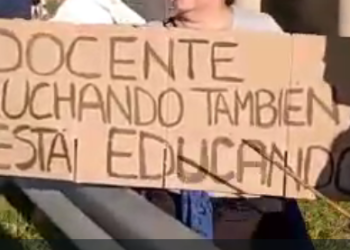 DOCENTE
LUCHANDO TAMBIÉN
ESTÁ EDUCANDO